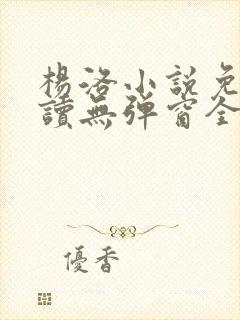 楊洛小說免
讀無彈窗全
優香